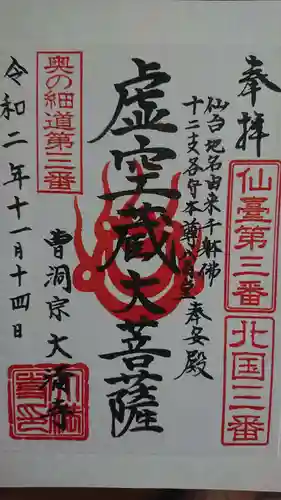 奉拝
仙臺第三番
北国三番
仙台地名由来千躰佛
十二支各守本尊
奉安殿
虚空蔵大菩薩
奥の細道第三番
曹洞宗大満寺
令和二年十一月十四日